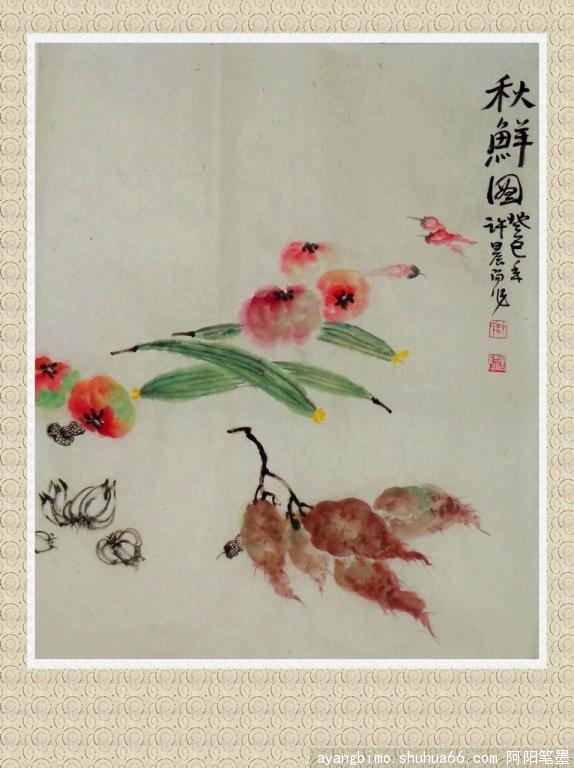 秋鮮圖
癸巳年
許晨雨作
ayangbimo.shuhua66.com 阿阳笔墨